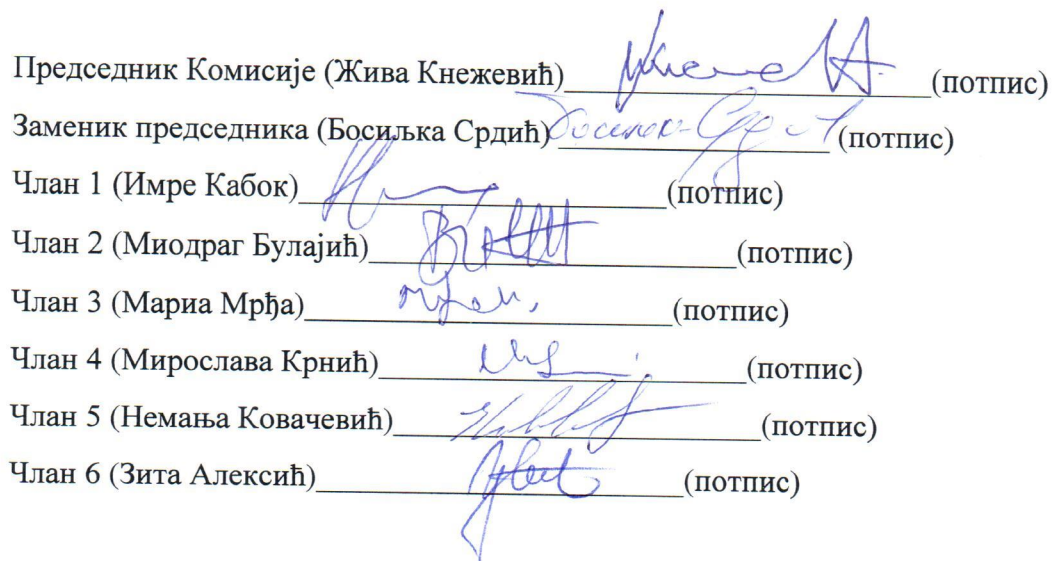 Председник Комисије (Жива Кнежевић)____________________________(потпис)
Заменик председника (Босиљка Срдић)____________________(потпис)
Члан 1 (Имре Кабок)____________________________(потпис)
Члан 2 (Миодраг Булајић)____________________________(потпис)
Члан 3 (Мариа Мрђа)____________________________(потпис)
Члан 4 (Мирослава Крнић)____________________________(потпис)
Члан 5 (Немања Ковачевић)____________________________(потпис)
Члан 6 (Зита Алексић)____________________________(потпис)